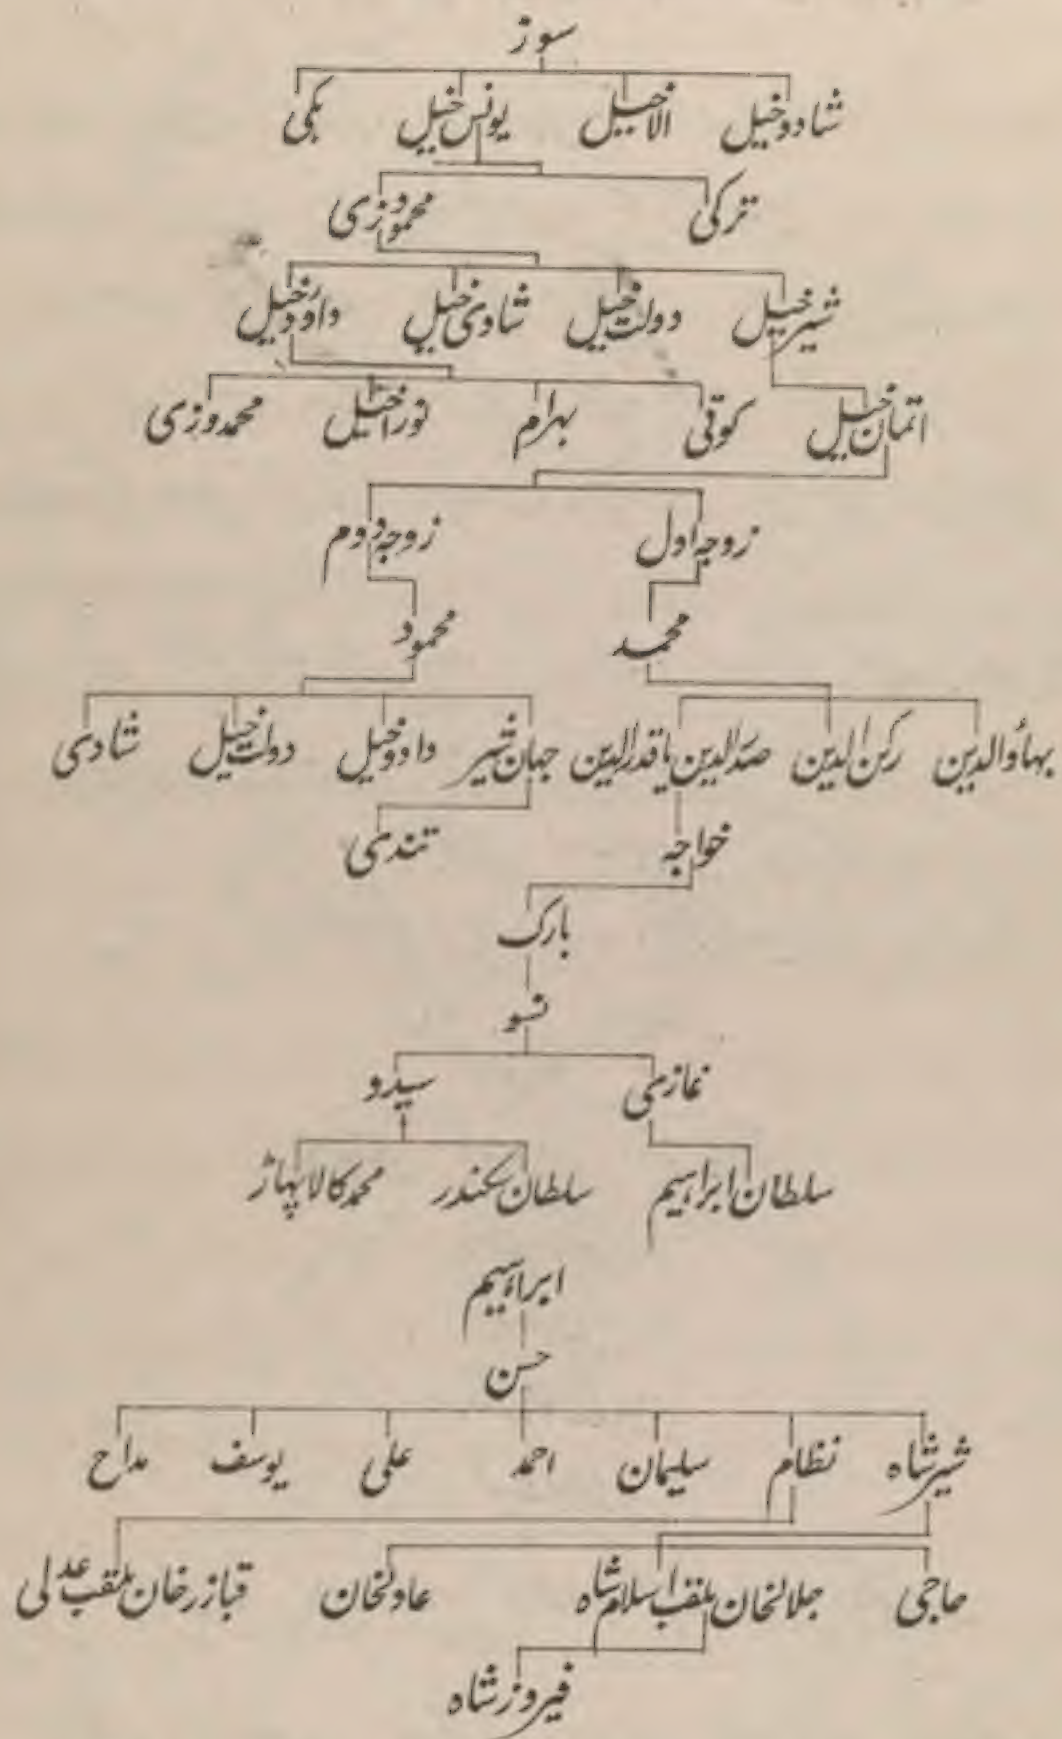 سوز
شادوخیل الاخیل یونس خیل مکی
ترکی محمودزی
شیرخیل دولت خیل شادی خیل داودخیل
اتمان خیل کوتی بہرام نوراخیل محمدوزی
زوجہ اول زوجہ دوم
محمد محمود
بہاؤالدین رکن الدین صدرالدین یا قدرالدین جہان شیر داودخیل دولت خیل شادی
خواجہ تندی
بارک
نسو
غازی سیدو
سلطان ابراہیم سلطان سکندر محمد کالاپہاڑ
ابراہیم
حسن
شیرشاہ نظام سلیمان احمد علی یوسف مداح
حاجی جلالخان ملقب اسلام شاہ عادلخان مبارزخان ملقب عدلی
فیروزشاہ